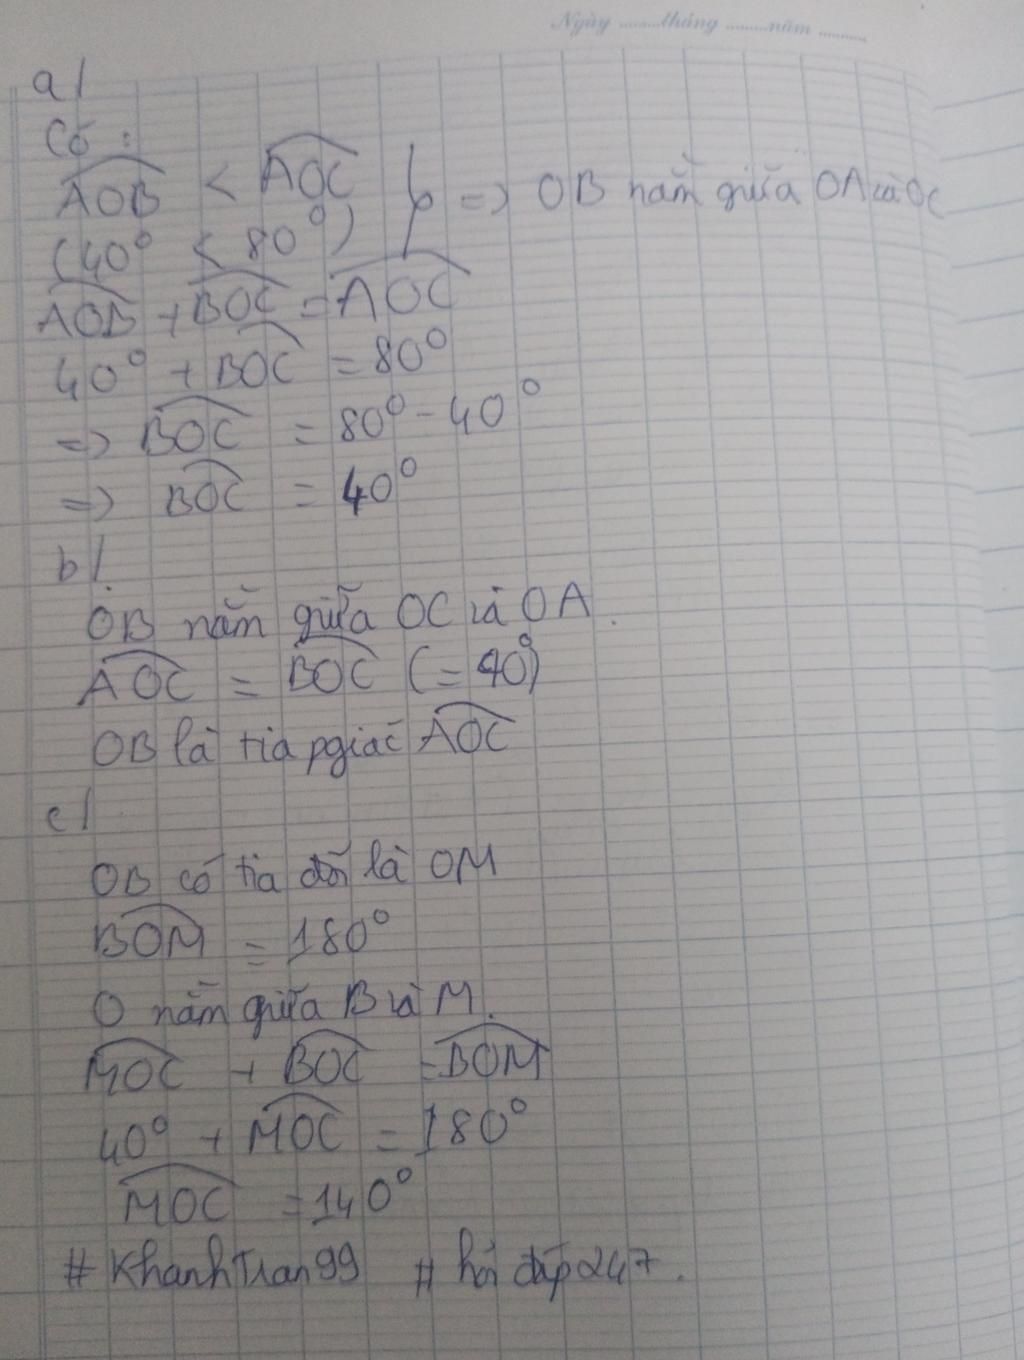 Ngày ........tháng ........năm ........
a/
Có :
AOB < AOC } => OB nằm giữa OA và OC
(40° < 80°)
AOB + BOC = AOC
40° + BOC = 80°
=> BOC = 80° - 40°
=> BOC = 40°
b/
OB nằm giữa OC và OA.
AOC = BOC (= 40°)
OB là tia pgiác AOC
c/
OB có tia đối là OM
BOM = 180°
O nằm giữa B và M.
MOC + BOC = BOM
40° + MOC = 180°
MOC = 140°
#KhanhTran99 #hỏi đáp247.